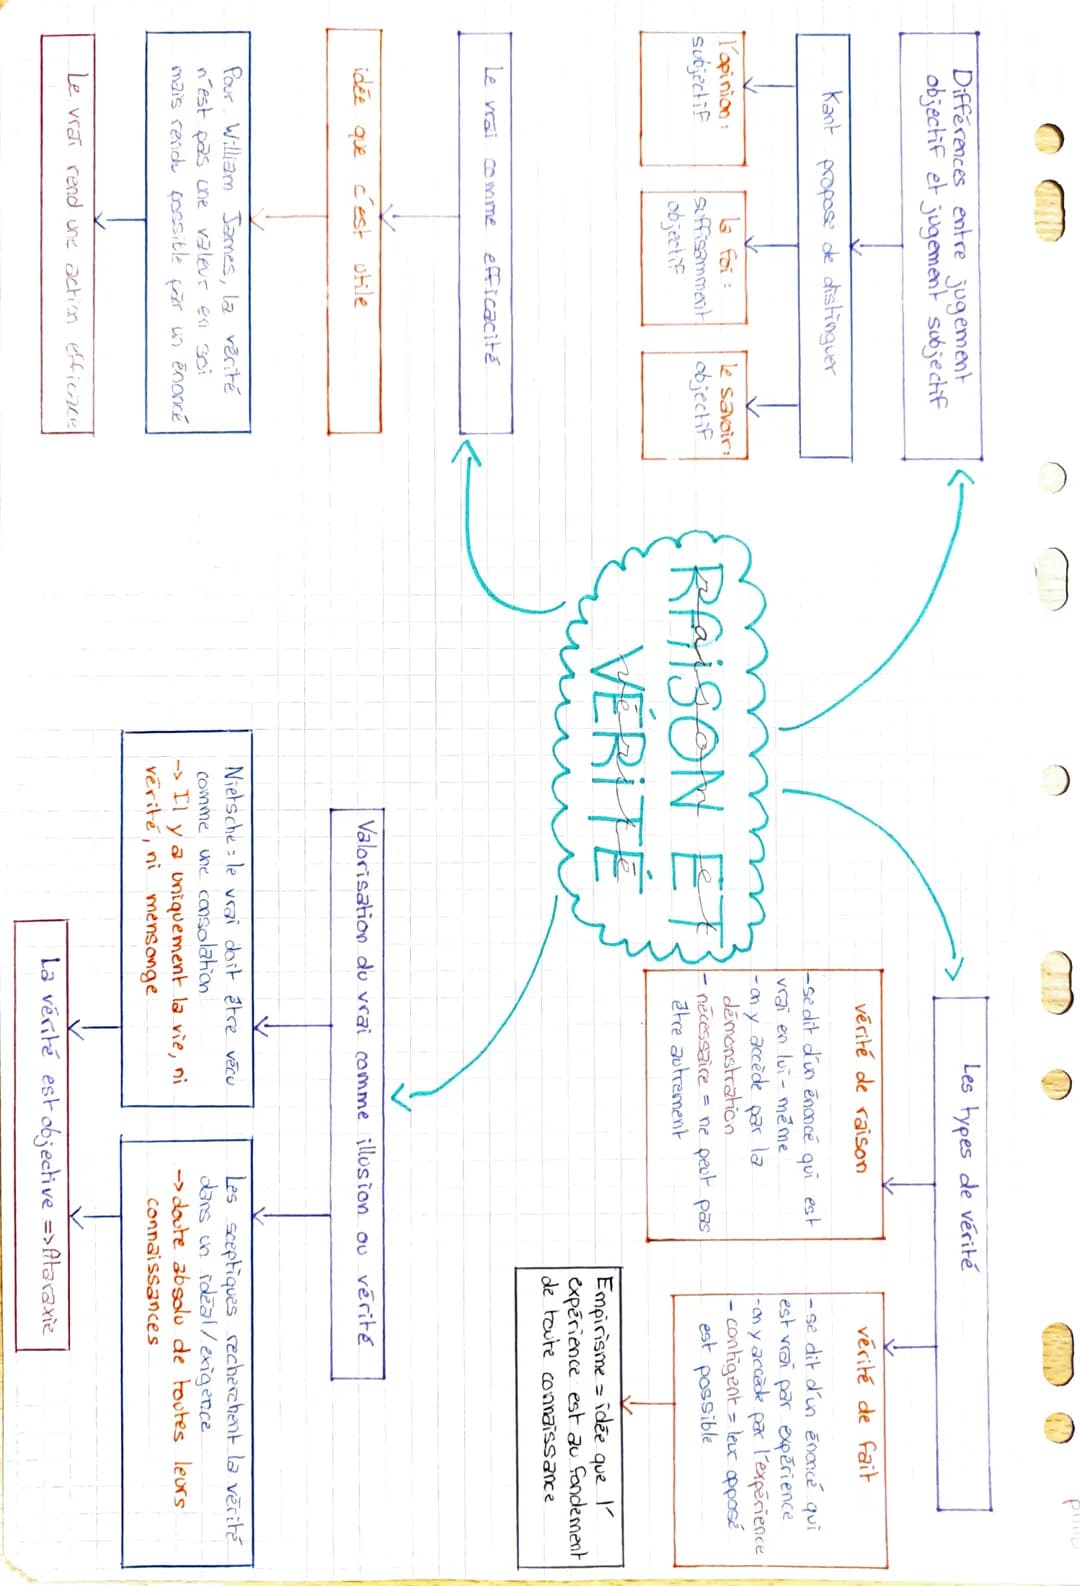 Différences entre jugement
objectif et jugement subjectif
Kant propose de distinguer
l'opinion :
subjectif
la foi :
suffisamment
objectif
le savoir:
objectif
Le vrai comme efficacité
idée que c'est utile
Pour William James, la vérité
n'est pas une valeur en soi
mais rendu possible par un énoncé
Le vrai rend une action efficace
RAISON ET
VÉRITÉ
Raison et
vérité
Les types de vérité
vérité de raison
-se dit d'un énoncé qui est
vrai en lui-même
-on y accède par la
démonstration
- nécessaire = ne peut pas
être autrement
vérité de fait
-se dit d'un énoncé qui
est vrai par expérience
-on y accède par l'expérience
- contigent = leur opposé
est possible
Empirisme = idée que l'
expérience est au fondement
de toute connaissance
Valorisation du vrai comme illusion ou vérité
Nietsche : le vrai doit être vécu
comme une consolation
-> Il y a uniquement la vie, ni
vérité, ni mensonge
Les sceptiques recherchent la vérité
dans un idéal/exigence
-> doute absolu de toutes leurs
connaissances
La vérité est objective => Ataraxie